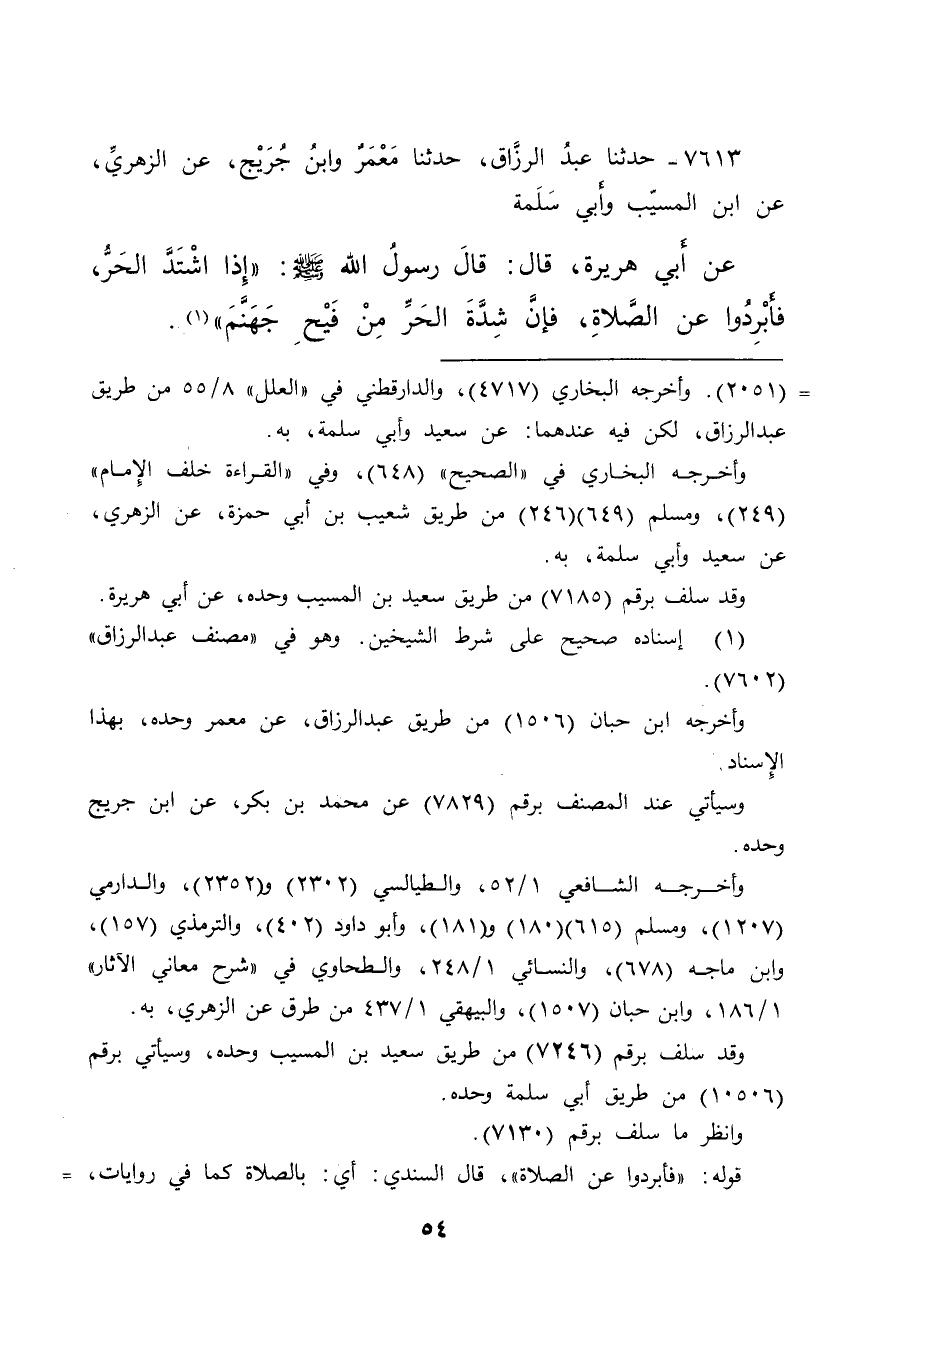 ٧٦١٣ - حدثنا عبدُ الرزَّاق، حدثنا مَعْمَرٌ وابنُ جُرَيْج، عن الزهريِّ،
عن ابن المسيّب وأَبي سَلَمة
عن أَبي هريرة، قال: قالَ رسولُ الله ﷺ: «إِذا اشْتَدَّ الحَرُّ،
فأَبْرِدُوا عن الصَّلاةِ، فإنَّ شِدَّةَ الحَرِّ مِنْ فَيْحِ جَهَنَّمَ»(١).
= (٢٠٥١). وأخرجه البخاري (٤٧١٧)، والدارقطني في «العلل» ٥٥/٨ من طريق
عبدالرزاق، لكن فيه عندهما: عن سعيد وأبي سلمة، به.
وأخرجه البخاري في «الصحيح» (٦٤٨)، وفي «القراءة خلف الإمام»
(٢٤٩)، ومسلم (٦٤٩)(٢٤٦) من طريق شعيب بن أبي حمزة، عن الزهري،
عن سعيد وأبي سلمة، به.
وقد سلف برقم (٧١٨٥) من طريق سعيد بن المسيب وحده، عن أبي هريرة.
(١) إسناده صحيح على شرط الشيخين. وهو في «مصنف عبدالرزاق»
(٧٦٠٢).
وأخرجه ابن حبان (١٥٠٦) من طريق عبدالرزاق، عن معمر وحده، بهذا
الإسناد.
وسيأتي عند المصنف برقم (٧٨٢٩) عن محمد بن بكر، عن ابن جريج
وحده.
وأخرجه الشافعي ٥٢/١، والطيالسي (٢٣٠٢) و(٢٣٥٢)، والدارمي
(١٢٠٧)، ومسلم (٦١٥)(١٨٠) و(١٨١)، وأبو داود (٤٠٢)، والترمذي (١٥٧)،
وابن ماجه (٦٧٨)، والنسائي ٢٤٨/١، والطحاوي في «شرح معاني الآثار»
١٨٦/١، وابن حبان (١٥٠٧)، والبيهقي ٤٣٧/١ من طرق عن الزهري، به.
وقد سلف برقم (٧٢٤٦) من طريق سعيد بن المسيب وحده، وسيأتي برقم
(١٠٥٠٦) من طريق أبي سلمة وحده.
وانظر ما سلف برقم (٧١٣٠).
قوله: «فأبردوا عن الصلاة»، قال السندي: أي: بالصلاة كما في روايات، =
٥٤